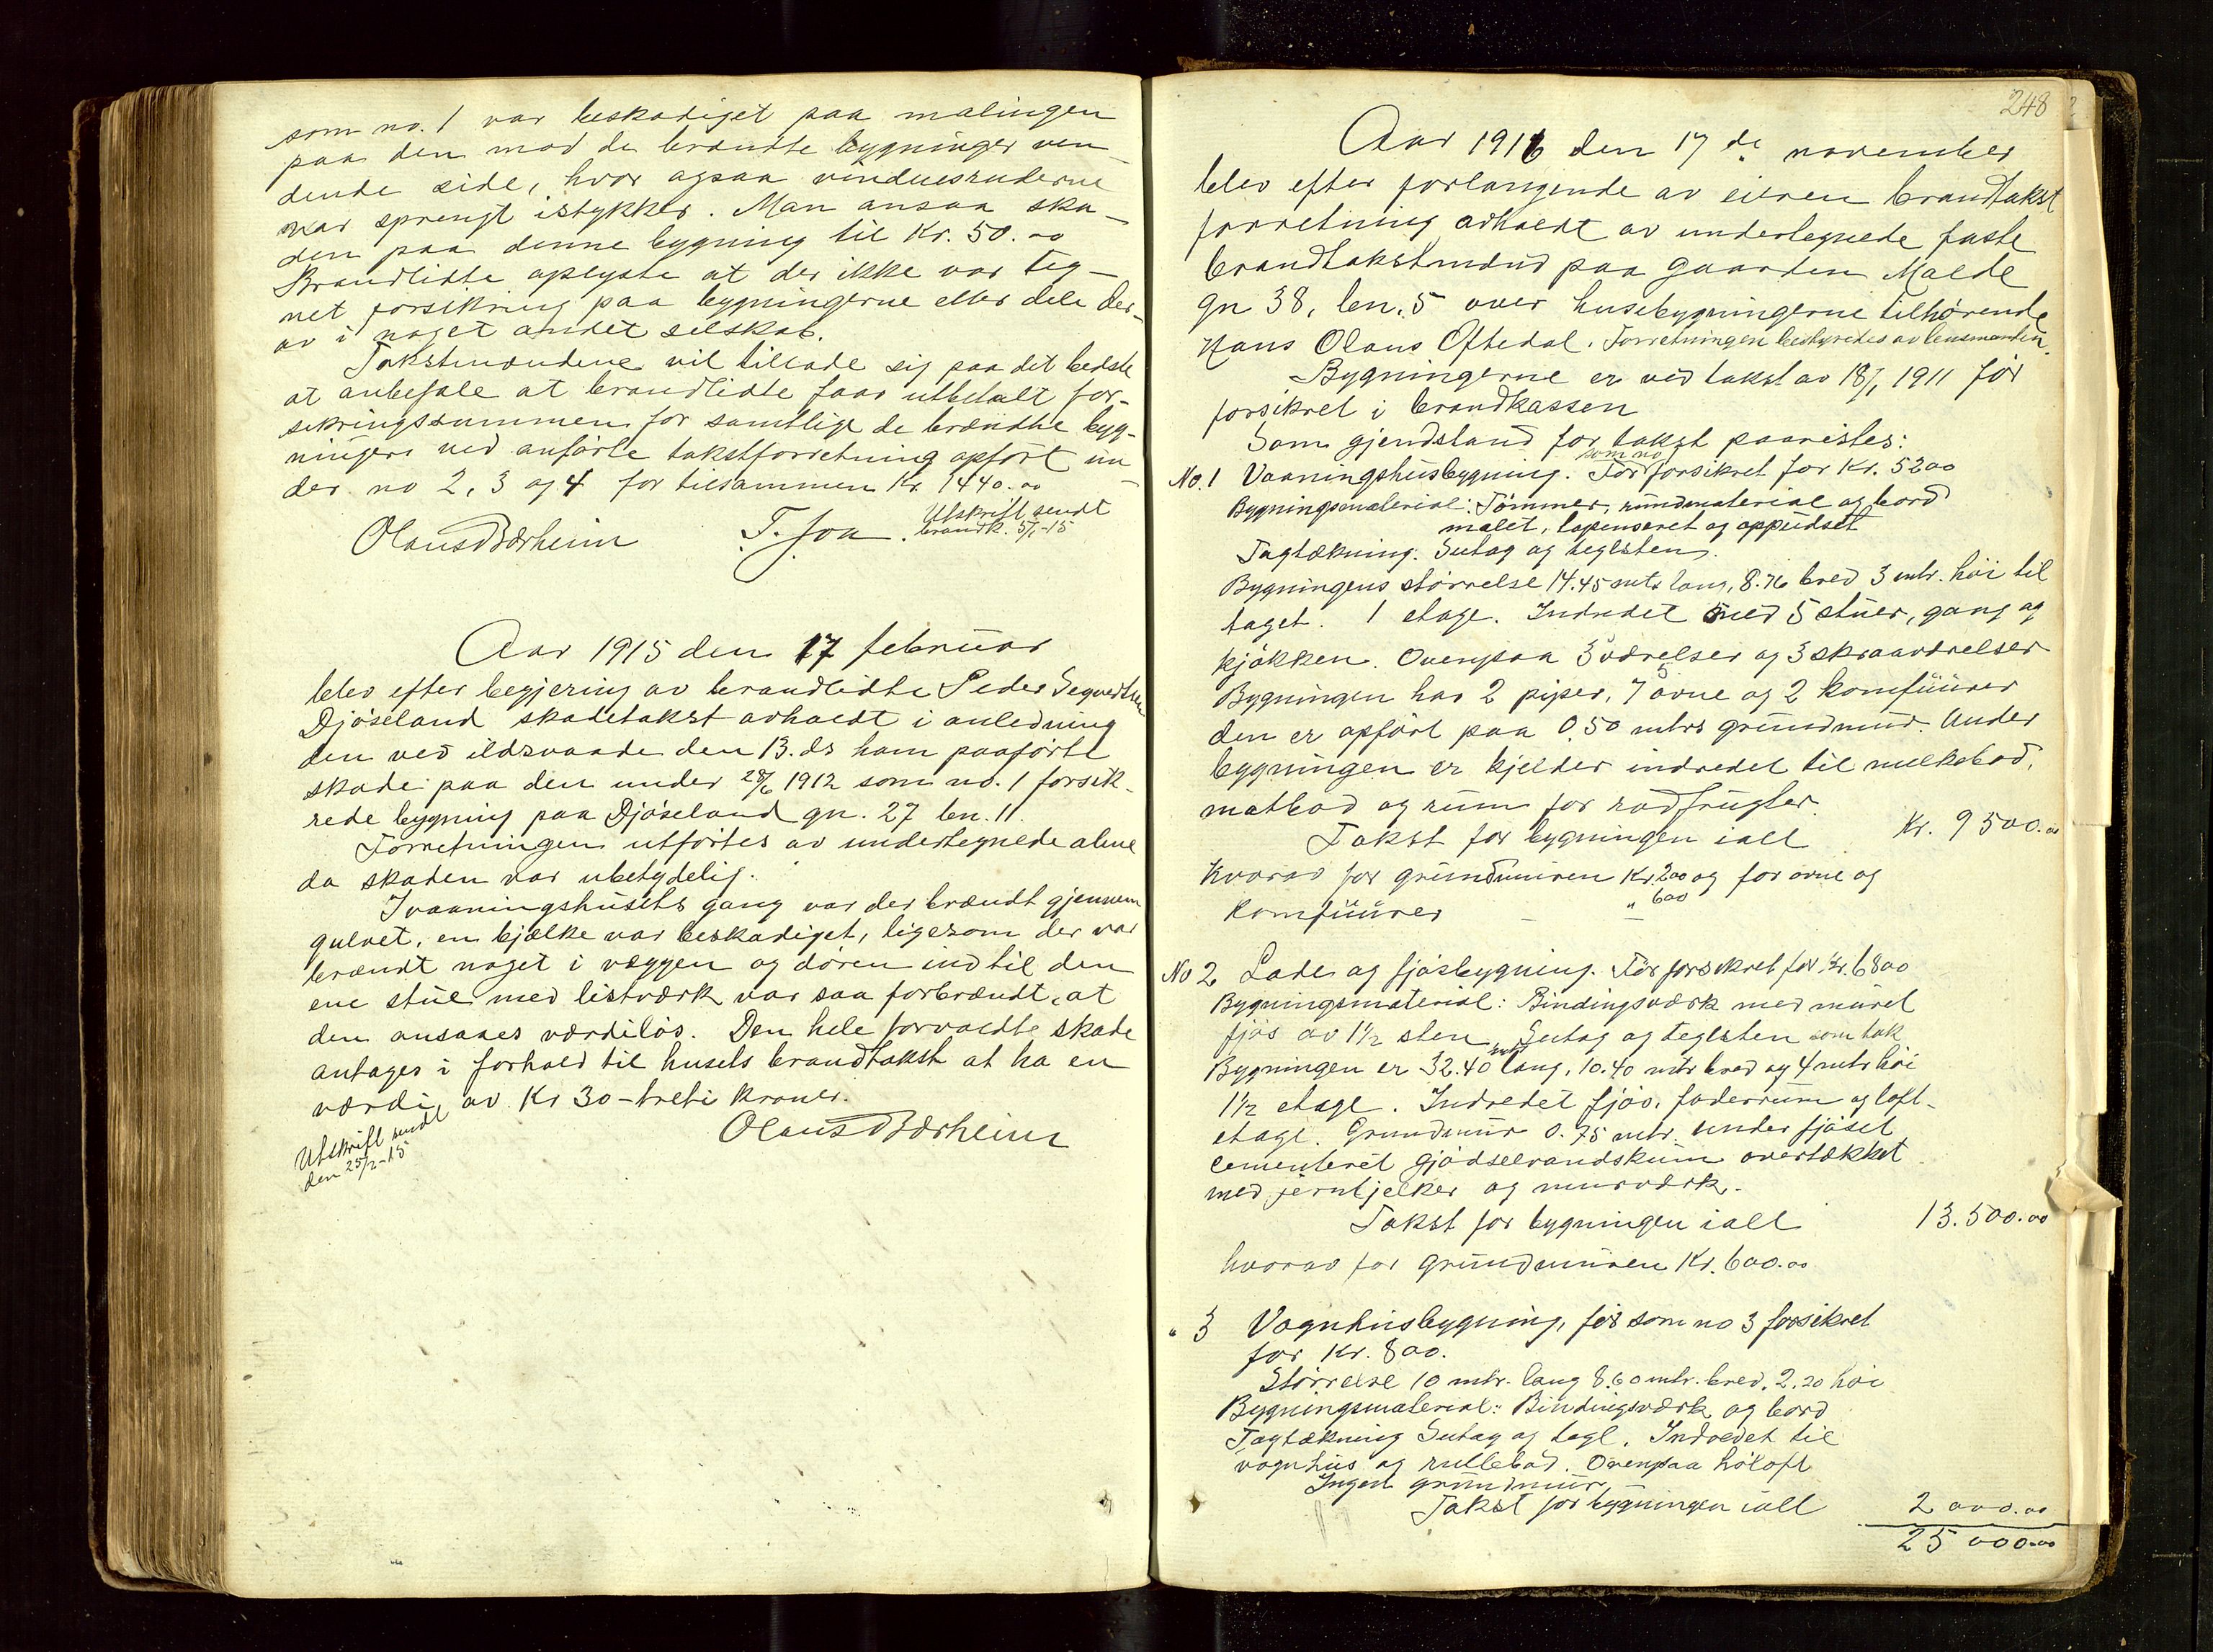 som no. 1 var beskadiget paa malingen
paa den mod de brændte bygninger ven-
dende side, hvor ogsaa vinduesruderne
var sprengt istykker. Man ansaa ska-
den paa denne bygning til Kr. 50.00
Brandlidte oplyste at der ikke var teg-
net forsikring paa bygningerne eller dele der-
av i noget andet selskab.
Takstmændene vil tillade sig paa det bedste
at anbefale at brandlidte faar utbetalt for-
sikringssummen for samtlige de brændte byg-
ninger ved anførte takstforretning opført un-
der no 2, 3 og 4 for tilsammen Kr. 1440.00
Utskrift sendt
brandk. 5/1-15
Olaus Bærheim T. Joa.
Aar 1915 den 17 februar
blev efter begjering av brandlidte Peder Segvedtsen
Djøseland skadetakst avholdt i anledning
den ved ildsvaade den 13. ds ham paaførte
skade paa den under 28/6 1912 som no. 1 forsik-
rede bygning paa Djøseland gn. 27 bn. 11.
Forretningen utførtes av undertegnede alene
da skaden var ubetydelig.
I vaaningshusets gang var der brændt gjennem
gulvet, en bjælke var beskadiget, ligesom der var
brændt noget i væggen og døren ind til den
ene stue med listværk var saa forbrændt, at
den ansaaes værdiløs. Den hele forvoldte skade
antages i forhold til husets brandtakst at ha en
værdi av Kr 30 - treti kroner.
Olaus Bærheim
Utskrift sendt
den 25/2-15
248
Aar 1916 den 17de november
blev efter forlangende av eieren brandtakst
forretning avholdt av undertegnede faste
brandtakstmænd paa gaarden Malde
gn 38, bn. 5 over husebygningerne tilhørende
Hans Olaus Oftedal. Forretningen bestyredes av lensmanden.
Bygningerne er ved takst av 18/1 1911 før
forsikret i brandkassen
Som gjendstand for takst paavistes:
No. 1 Vaaningshusbygning. Før som no forsikret for Kr. 5200
Bygningsmaterial: Tømmer, rundmaterial og bord
malet, tapenseret og oppudset
Tagtækning: Sutag og teglsten.
Bygningens størrelse 14.45 mtr lang, 8.76 bred 3 mtr. høi til
taget. 1 etage. Indredet med 5 stuer, gang og
kjøkken. Ovenpaa 3 værelser og 3 skraaværelser
Bygningen har 2 piper, 7 ovne og 2 komfüürer
den er opført paa 0.50 mtrs grundmur. Under
bygningen er kjelder indredet til melkebod,
matbod og rum for rodfrugter.
Takst for bygningen ialt Kr. 9500.00
Hvorav for grundmuren Kr. 200 og for ovne og
komfüürer " 600
No 2 Lade og fjøsbygning. Før forsikret for Kr. 6800
Bygningsmaterial: Bindingsværk med muret
fjøs av 1½ sten, Sutag og teglsten som tak
Bygningen er 32.40 mtr lang, 10.40 mtr bred og 4 mtr høi
1½ etage. Indredet fjøs, foderrum og loft-
etage. Grundmur 0.75 mtr. under fjøset
cementeret gjødselvandskum overtækket
med jernbjelker og murværk.
Takst for bygningen ialt 13.500.00
hvorav for grundmuren Kr. 600.00
" 3 Vognhusbygning, før som no 3 forsikret
for Kr. 800.
Størrelse 10 mtr. lang 8.60 mtr. bred, 2.20 høi
Bygningsmaterial: Bindingsværk og bord
Tagtækning Sutag og tegl. Indredet til
vognhus og rullebod. Ovenpaa høloft
Ingen grundmur
Takst for bygningen ialt 2000.00
25000.00